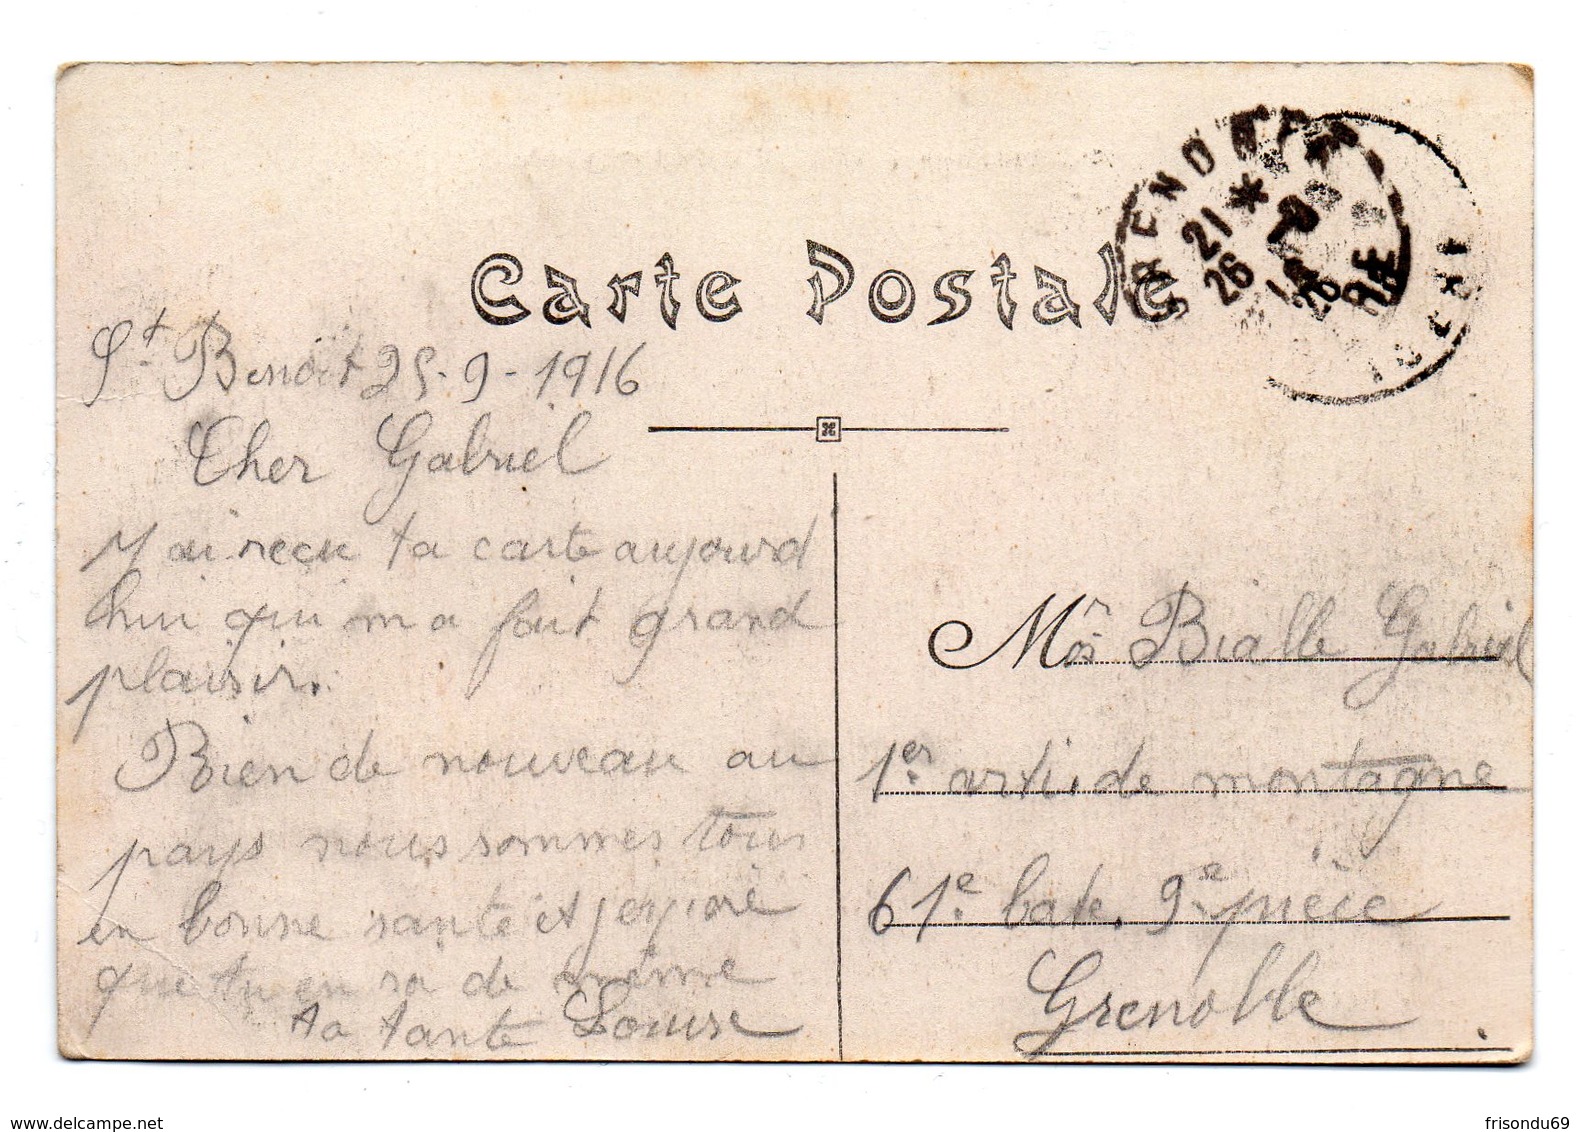 Carte Postale
GRENOBLE
21 *
26
ISERE
St Benoit 25-9-1916
Cher Gabriel
J ai recu ta carte aujourd
hui qui m a fait grand
plaisir.
Rien de nouveau au
pays nous sommes tous
en bonne sante et j espore
que tu en sa de même
ta tante Louise
Mr Bialle Gabriel
1er arti. de montagne
61e bate. 9e pièce
Grenoble
www.delcampe.net
frisondu69